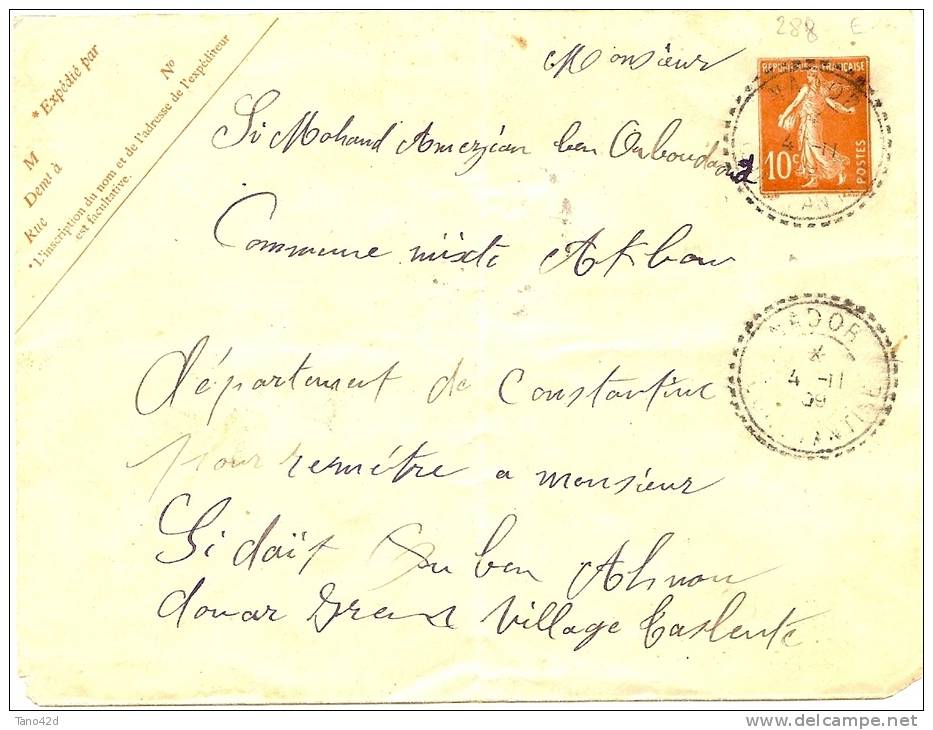 288 E
* Expédié par
M
Demt à
Rue
N°
* L'inscription du nom et de l'adresse de l'expéditeur
est facultative.
REPUBLIQUE FRANÇAISE
10c
POSTES
NADOR
4 -11
Monsieur
Si Mohand Amezian ben Ouboudaoud
Commune mixte Akbou
NADOR
4 -11
09
département de Constantine
pour remétre a monsieur
Si daïf ou ben
douar Village Taslente
Tano42d
www.delcampe.net